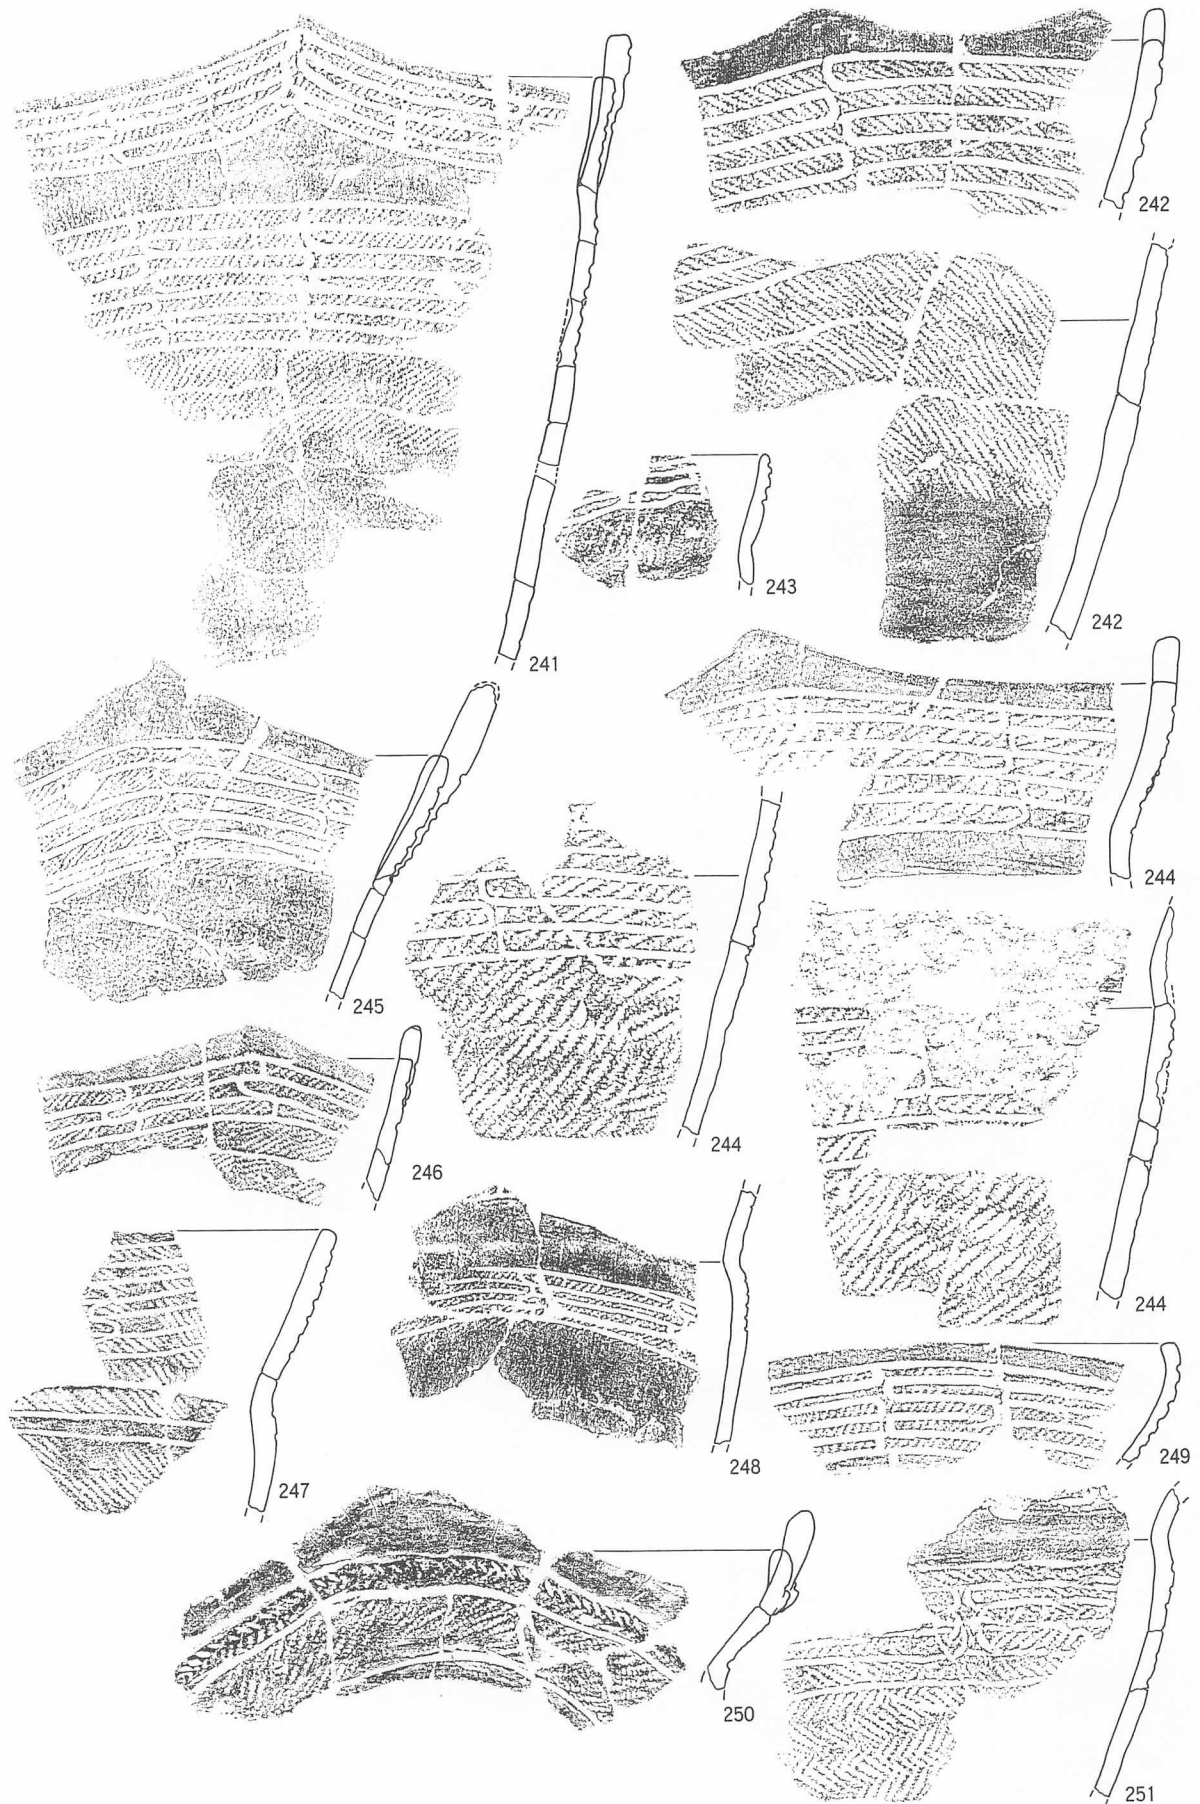 242
243
242
241
244
245
244
246
244
248
249
247
250
251